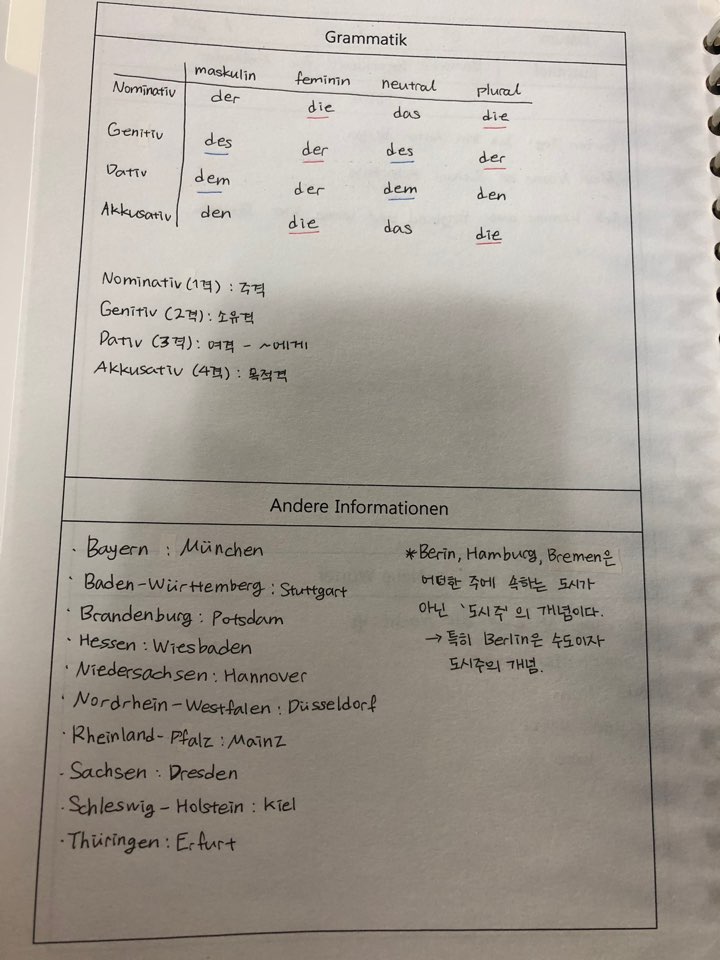 Grammatik
maskulin feminin neutral plural
Nominativ der die das die
Genitiv des der des der
Dativ dem der dem den
Akkusativ den die das die
Nominativ (1격) : 주격
Genitiv (2격) : 소유격
Dativ (3격) : 여격 - ~에게
Akkusativ (4격) : 목적격
Andere Informationen
· Bayern : München
· Baden-Württemberg : Stuttgart
· Brandenburg : Potsdam
· Hessen : Wiesbaden
· Niedersachsen : Hannover
· Nordrhein-Westfalen : Düsseldorf
· Rheinland-Pfalz : Mainz
· Sachsen : Dresden
· Schleswig-Holstein : Kiel
· Thüringen : Erfurt
*Berin, Hamburg, Bremen은
어떠한 주에 속하는 도시가
아닌 '도시주'의 개념이다.
→ 특히 Berlin은 수도이자
도시주의 개념.